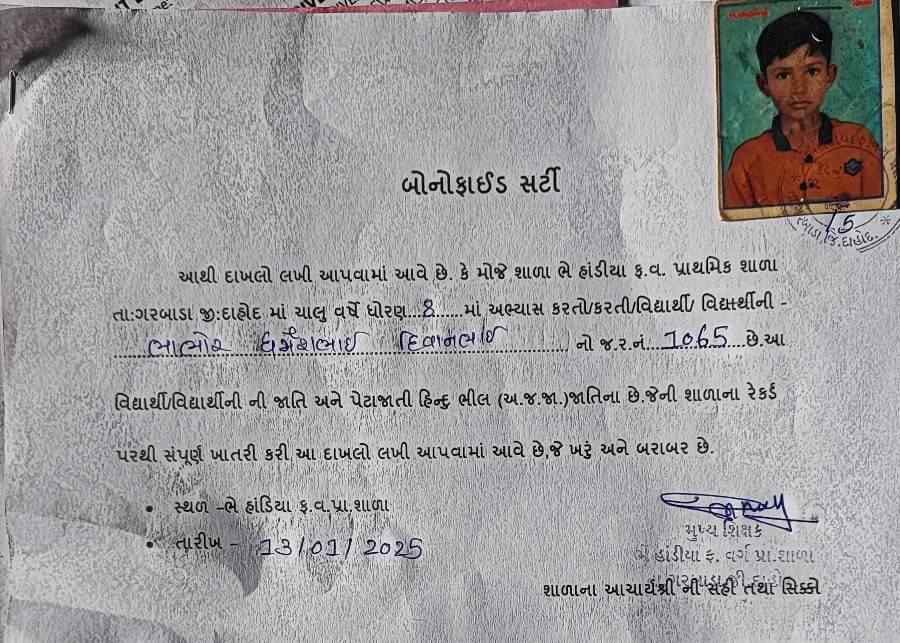 બોનોફાઈડ સર્ટી
આથી દાખલો લખી આપવામાં આવે છે. કે મોજે શાળા ભે હાંડીયા ફ.વ. પ્રાથમિક શાળા
તા:ગરબાડા જી:દાહોદ માં ચાલુ વર્ષે ધોરણ...8......માં અભ્યાસ કરતો/કરતી/વિદ્યાર્થી/ વિદ્યાર્થીની -
ભાભોર ધર્મેશભાઈ દિવાનભાઈ નો જ.ર.નં....1065....છે.આ
વિદ્યાર્થી/વિદ્યાર્થીની ની જાતિ અને પેટાજાતી હિન્દુ ભીલ (અ.જ.જા.)જાતિના છે.જેની શાળાના રેકર્ડ
પરથી સંપૂર્ણ ખાતરી કરી આ દાખલો લખી આપવામાં આવે છે,જે ખરું અને બરાબર છે.
• સ્થળ -ભે હાંડિયા ફ.વ.પ્રા.શાળા
• તારીખ - 13/01/2025
મુખ્ય શિક્ષક
ભે હાંડીયા ફ. વર્ગ પ્રા.શાળા
શાળાના આચાર્યશ્રી ની સહી તથા સિક્કો
જિ.દાહોદ.